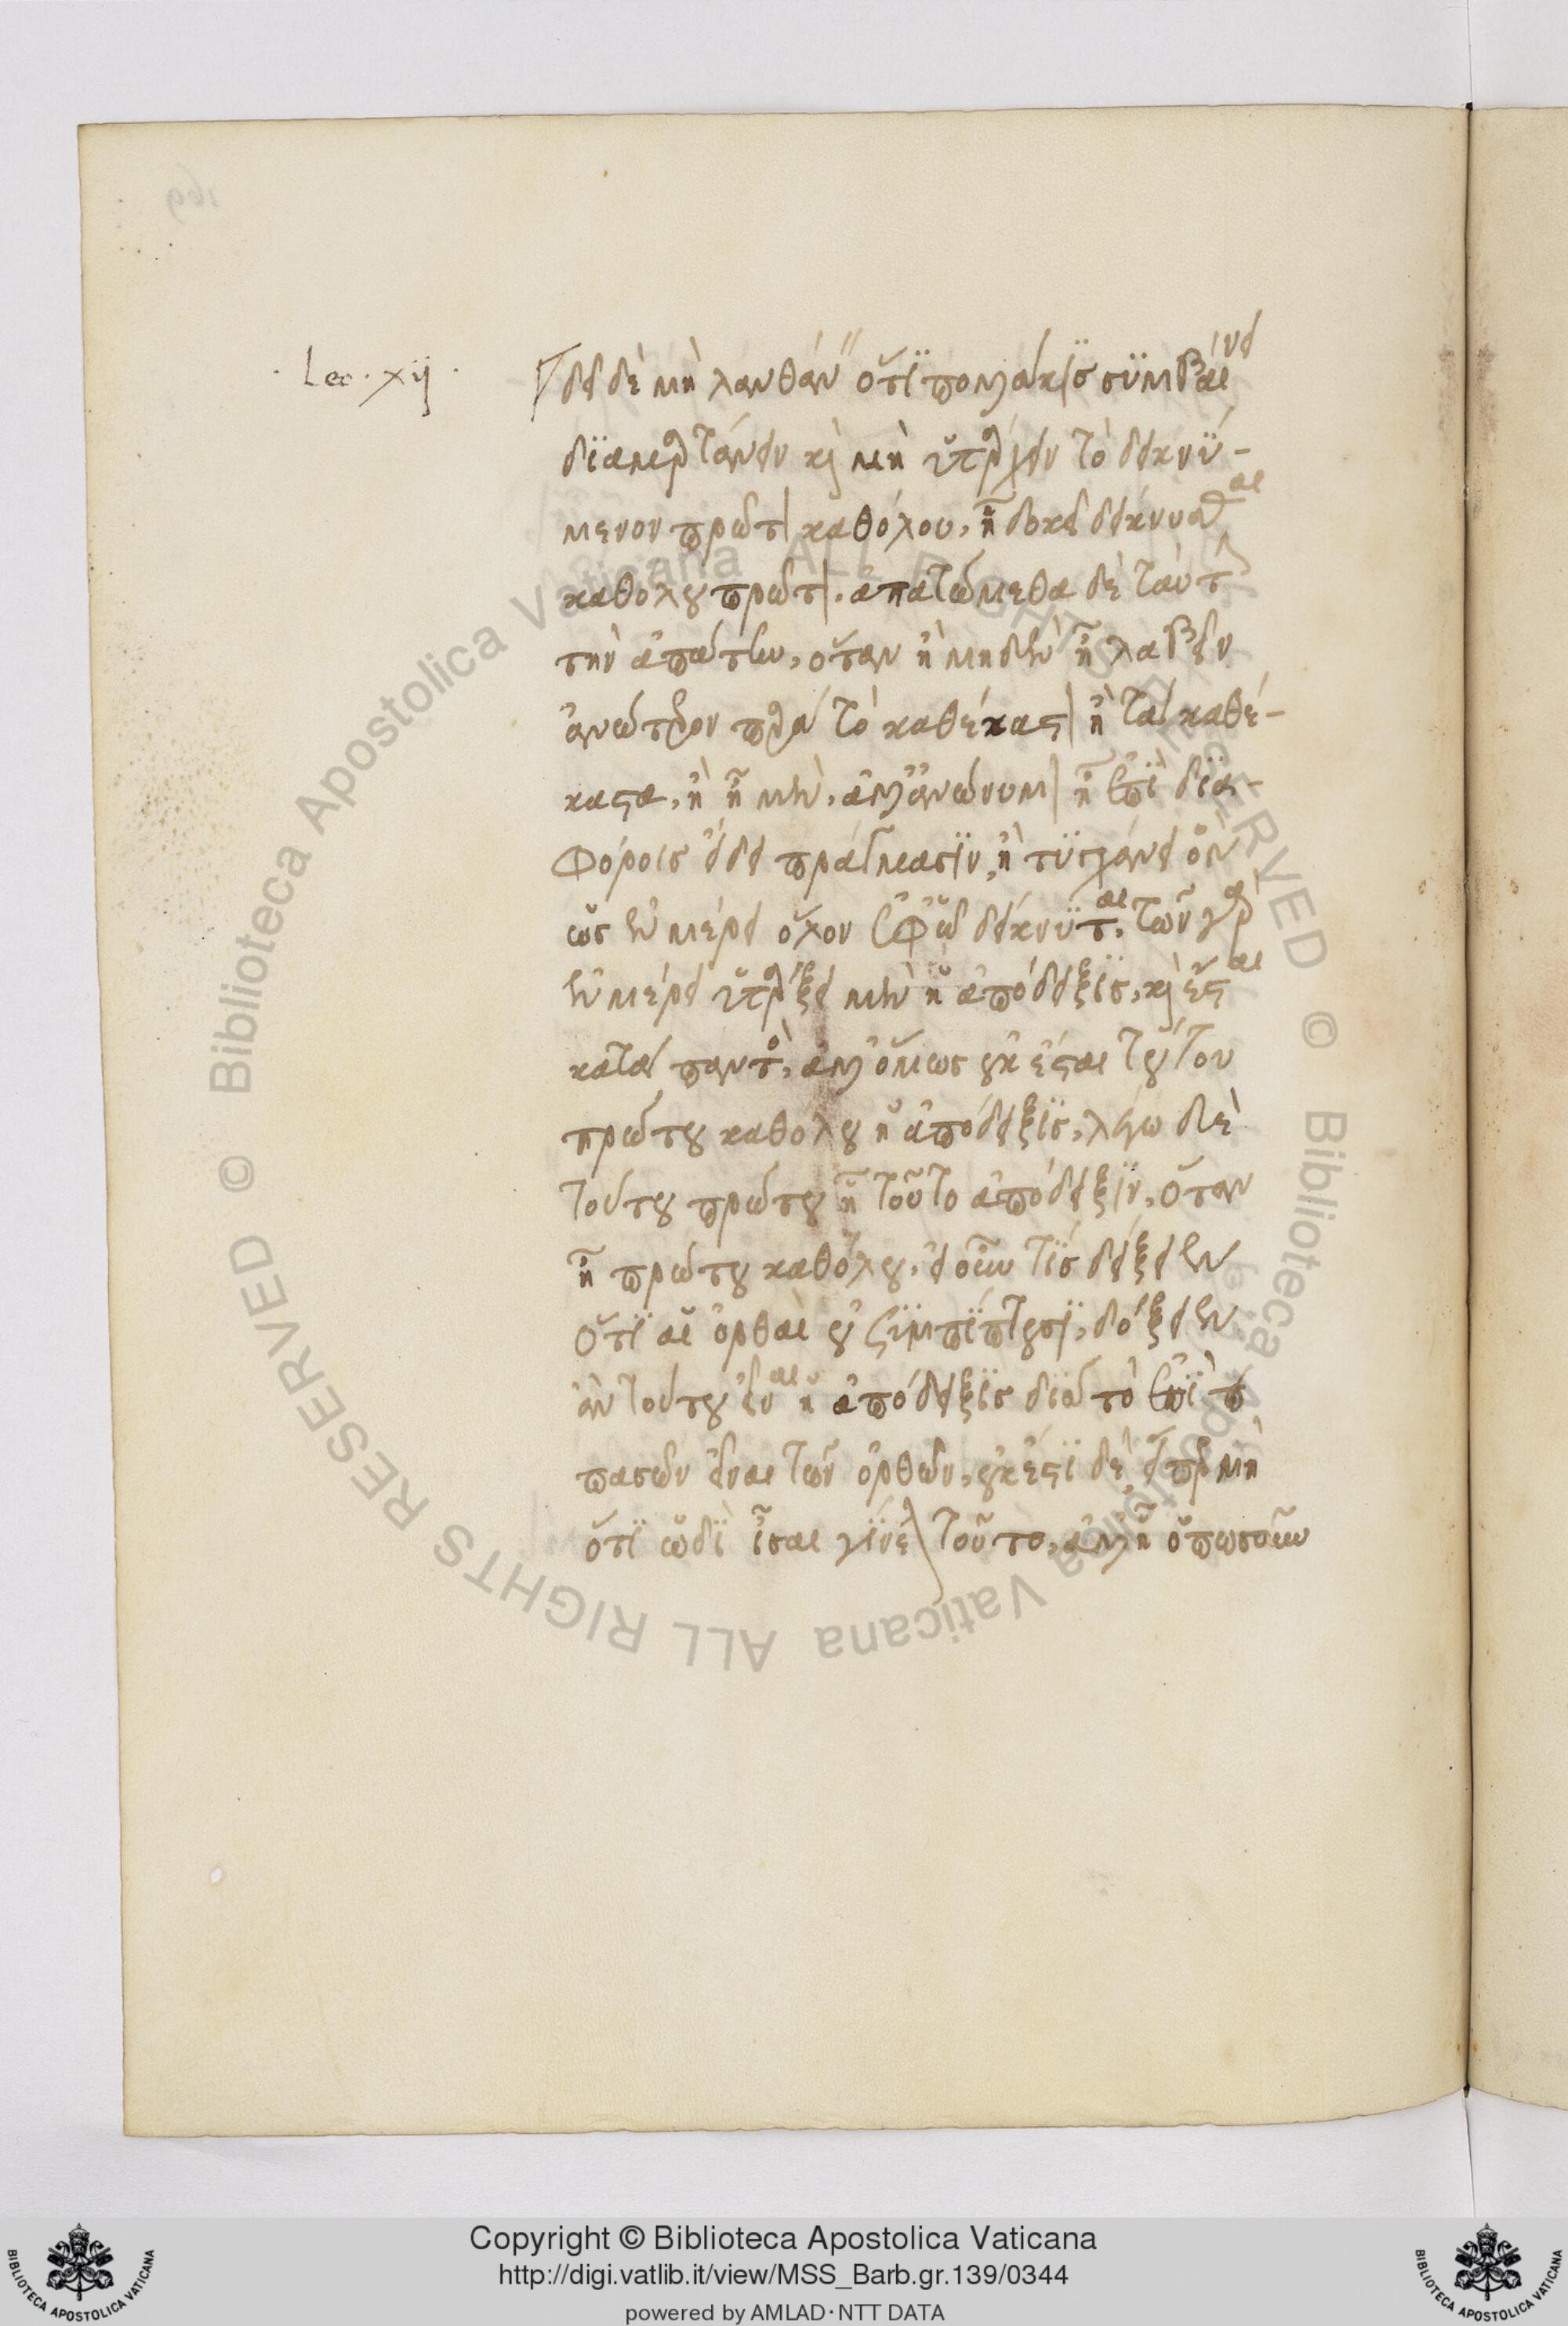 · Lec · xij ·
δεῖ δὲ μὴ λανθάνειν ὅτι πολλάκις συμβαίνει
διαμαρτάνειν καὶ μὴ ὑπάρχειν τὸ δεικνύ-
μενον πρῶτον καθόλου, ἧ δοκεῖ δείκνυσθαι
καθόλου πρῶτον. ἀπατώμεθα δὲ ταύτην
τὴν ἀπάτην, ὅταν ἢ μηδὲν ἦ λαβεῖν
ἀνώτερον παρὰ τὸ καθέκαστον ἢ τὰ καθέ-
καστα, ἢ ἦ μὲν, ἀλλ' ἀνώνυμον ἦ ἐπὶ δια-
φόροις εἴδει πράγμασιν, ἢ τυγχάνει ὂν
ὡς ἐν μέρει ὅλον ἐφ' ὧ δείκνυται. τῶν γὰρ
ἐν μέρει ὑπάρξει μὲν ἡ ἀπόδειξις, καὶ ἔσται
κατὰ παντός, ἀλλ' ὅμως οὐκ ἔσται τούτου
πρώτου καθόλου ἡ ἀπόδειξις, λέγω δὲ
τούτου πρώτου ἧ τοῦτο ἀπόδειξιν, ὅταν
ἦ πρώτου καθόλου. εἰ οὖν τίς δείξειεν
ὅτι αἱ ὀρθαὶ οὐ συμπίπτουσι, δόξειεν
ἂν τούτου εἶναι ἡ ἀπόδειξις διὰ τὸ ἐπὶ
πασῶν εἶναι τῶν ὀρθῶν, οὐκ ἔστι δέ, εἴπερ μὴ
ὅτι ὡδὶ ἴσαι γίνεται τοῦτο, ἀλλ' ἧ ὁπωσοῦν
Copyright © Biblioteca Apostolica Vaticana
http://digi.vatlib.it/view/MSS_Barb.gr.139/0344
powered by AMLAD · NTT DATA
BIBLIOTECA APOSTOLICA VATICANA
BIBLIOTECA APOSTOLICA VATICANA
© Biblioteca Apostolica Vaticana ALL RIGHTS RESERVED © Biblioteca Apostolica Vaticana ALL RIGHTS RESERVED